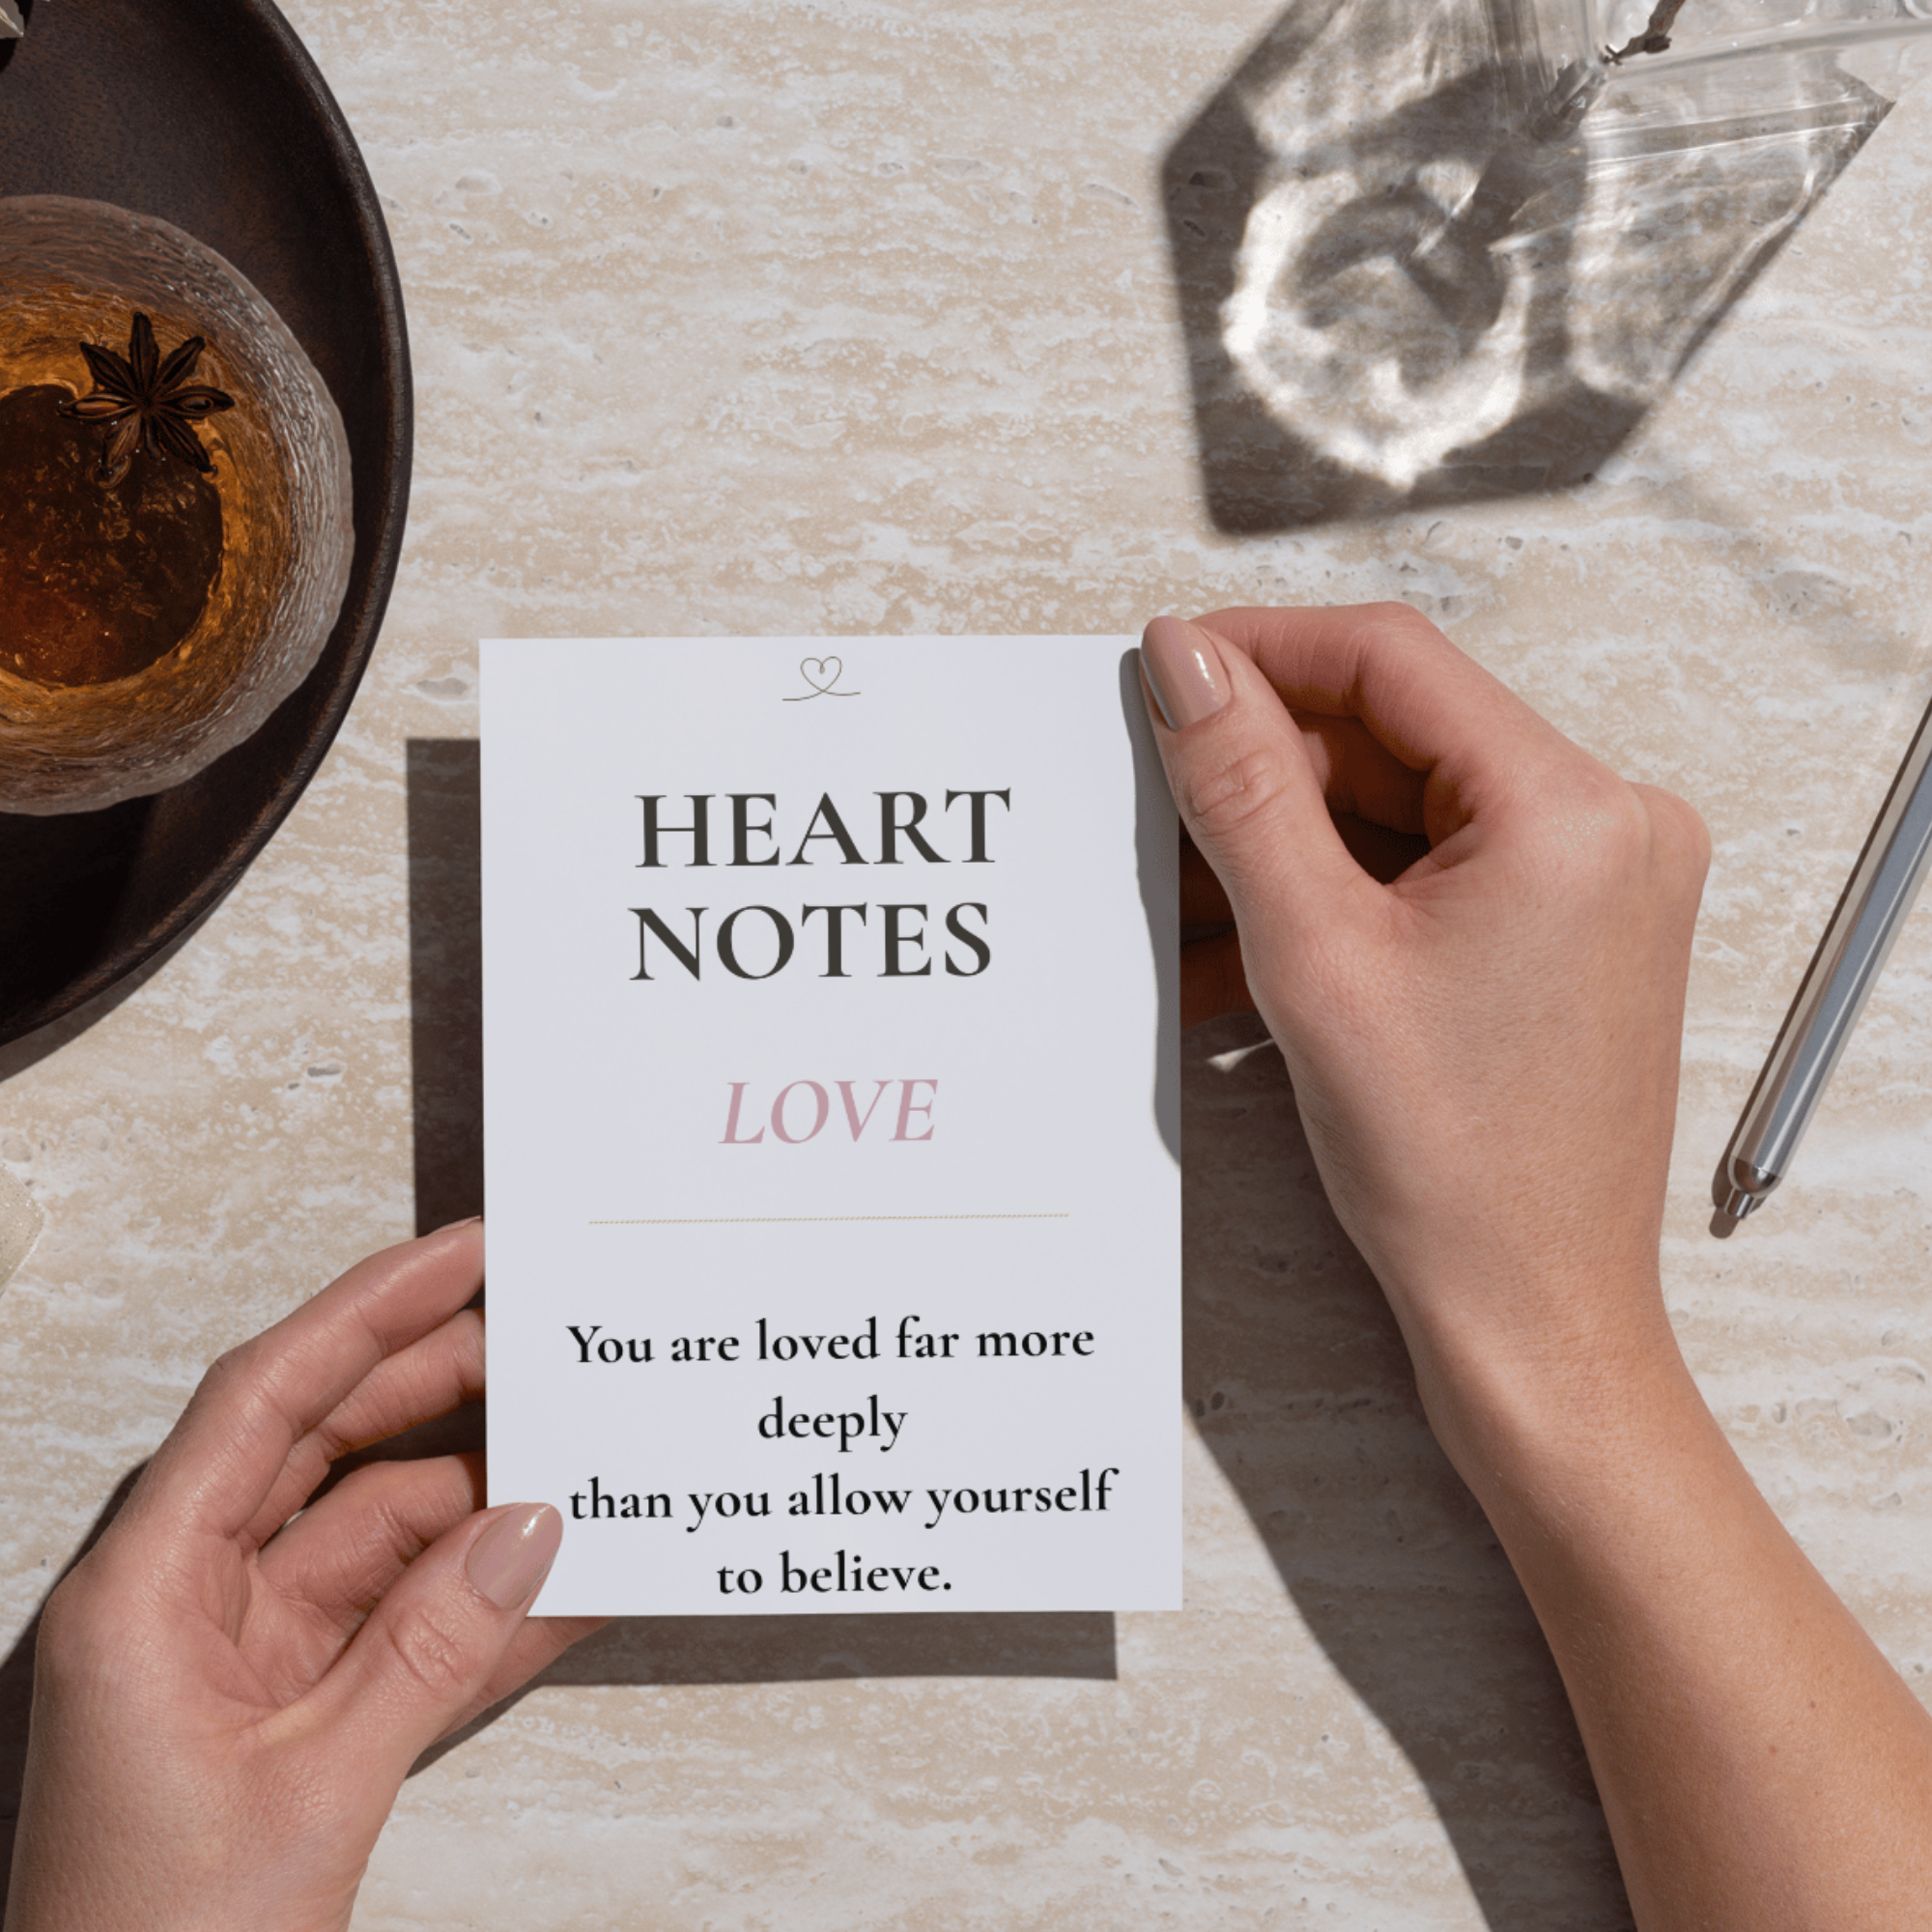 HEART
NOTES
LOVE
You are loved far more
deeply
than you allow yourself
to believe.